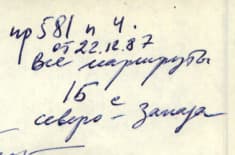 пр 581 п 4.
от 22.12.87
все маршруты
1Б
с
северо-запада